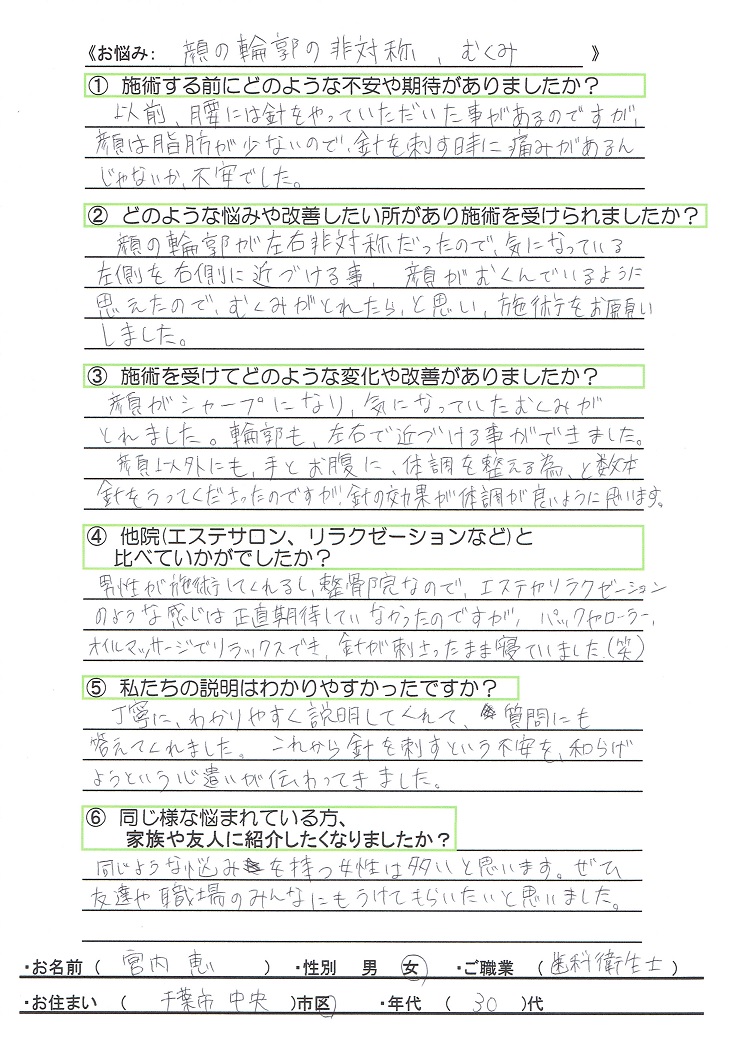 《お悩み： 顔の輪郭の非対称、むくみ 》
① 施術する前にどのような不安や期待がありましたか？
以前、腰には針をやっていただいた事があるのですが、
顔は脂肪が少ないので、針を刺す時に痛みがあるん
じゃないか、不安でした。
② どのような悩みや改善したい所があり施術を受けられましたか？
顔の輪郭が左右非対称だったので、気になっている
左側を右側に近づける事、 顔がむくんでいるように
思えたので、むくみがとれたら、と思い、施術をお願い
しました。
③ 施術を受けてどのような変化や改善がありましたか？
顔がシャープになり、気になっていたむくみが
とれました。輪郭も、左右で近づける事ができました。
顔以外にも、手とお腹に、体調を整える為、と数本
針をうってくださったのですが、針の効果が体調が良いように思います。
④ 他院(エステサロン、リラクゼーションなど)と
比べていかがでしたか？
男性が施術してくれるし、整骨院なので、エステやリラクゼーション
のような感じは正直期待していなかったのですが、パックやローラー、
オイルマッサージでリラックスでき、針が刺さったまま寝ていました.(笑)
⑤ 私たちの説明はわかりやすかったですか？
丁寧に、わかりやすく説明してくれて、質問にも
答えてくれました。 これから針を刺すという不安を、和らげ
ようという心遣いが伝わってきました。
⑥ 同じ様な悩まれている方、
家族や友人に紹介したくなりましたか？
同じような悩みを持つ女性は多いと思います。ぜひ
友達や職場のみんなにもうけてもらいたいと思いました。
・お名前 ( 宮内 恵 ) ・性別 男 女 ・ご職業 ( 歯科衛生士 )
・お住まい ( 千葉市 中央 )市区 ・年代 ( 30 )代